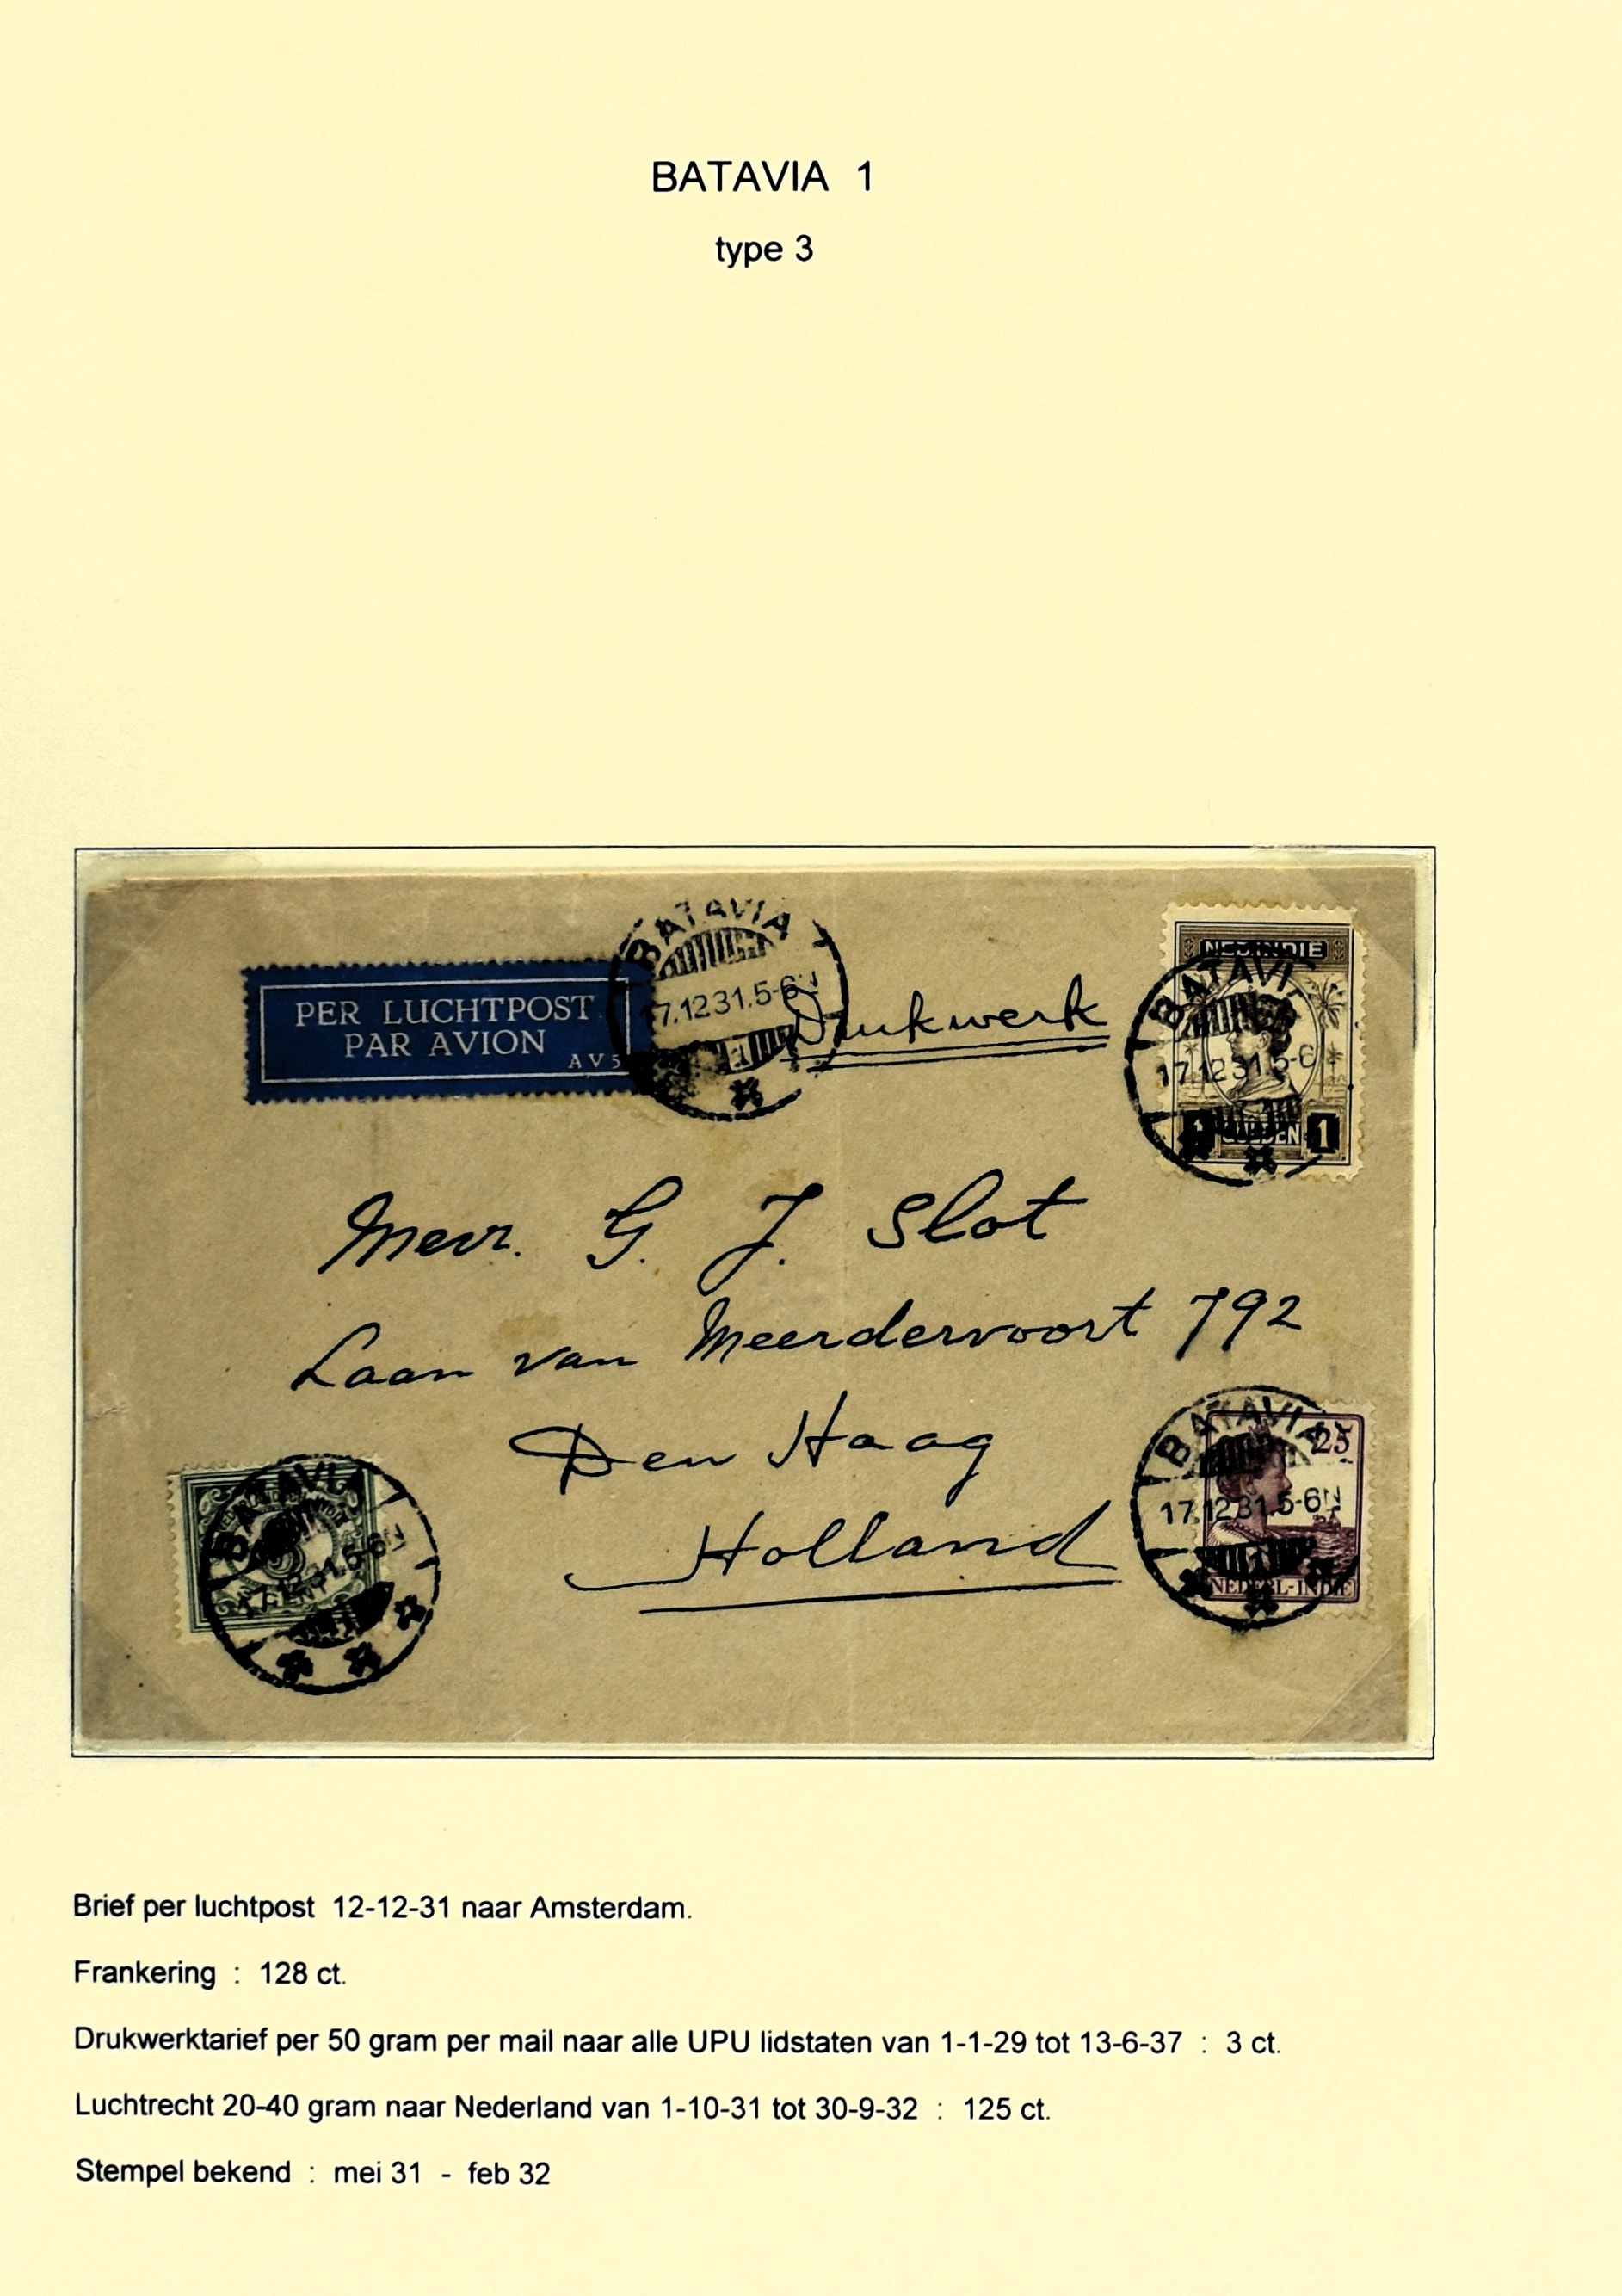 BATAVIA 1
type 3
BATAVIA
17.12.31.5-6N
PER LUCHTPOST
PAR AVION
AV5
Drukwerk
NED.INDIE
BATAVI
17.12 31.5-6
1 GULDEN 1
Mevr. G. J. Slot
Laan van Meerdervoort 792
Den Haag
Holland
BATAVIA
25
17.12 31.5-6N
NEDERL-INDIE
BATAVIA
17.12.31.5-6N
Brief per luchtpost 12-12-31 naar Amsterdam.
Frankering : 128 ct.
Drukwerktarief per 50 gram per mail naar alle UPU lidstaten van 1-1-29 tot 13-6-37 : 3 ct.
Luchtrecht 20-40 gram naar Nederland van 1-10-31 tot 30-9-32 : 125 ct.
Stempel bekend : mei 31 - feb 32